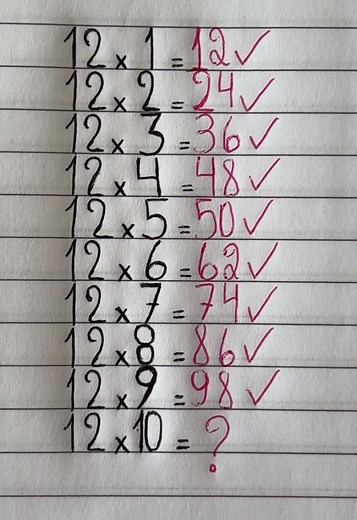 12 x 1 = 12 ✓
12 x 2 = 24 ✓
12 x 3 = 36 ✓
12 x 4 = 48 ✓
12 x 5 = 50 ✓
12 x 6 = 62 ✓
12 x 7 = 74 ✓
12 x 8 = 86 ✓
12 x 9 = 98 ✓
12 x 10 = ?